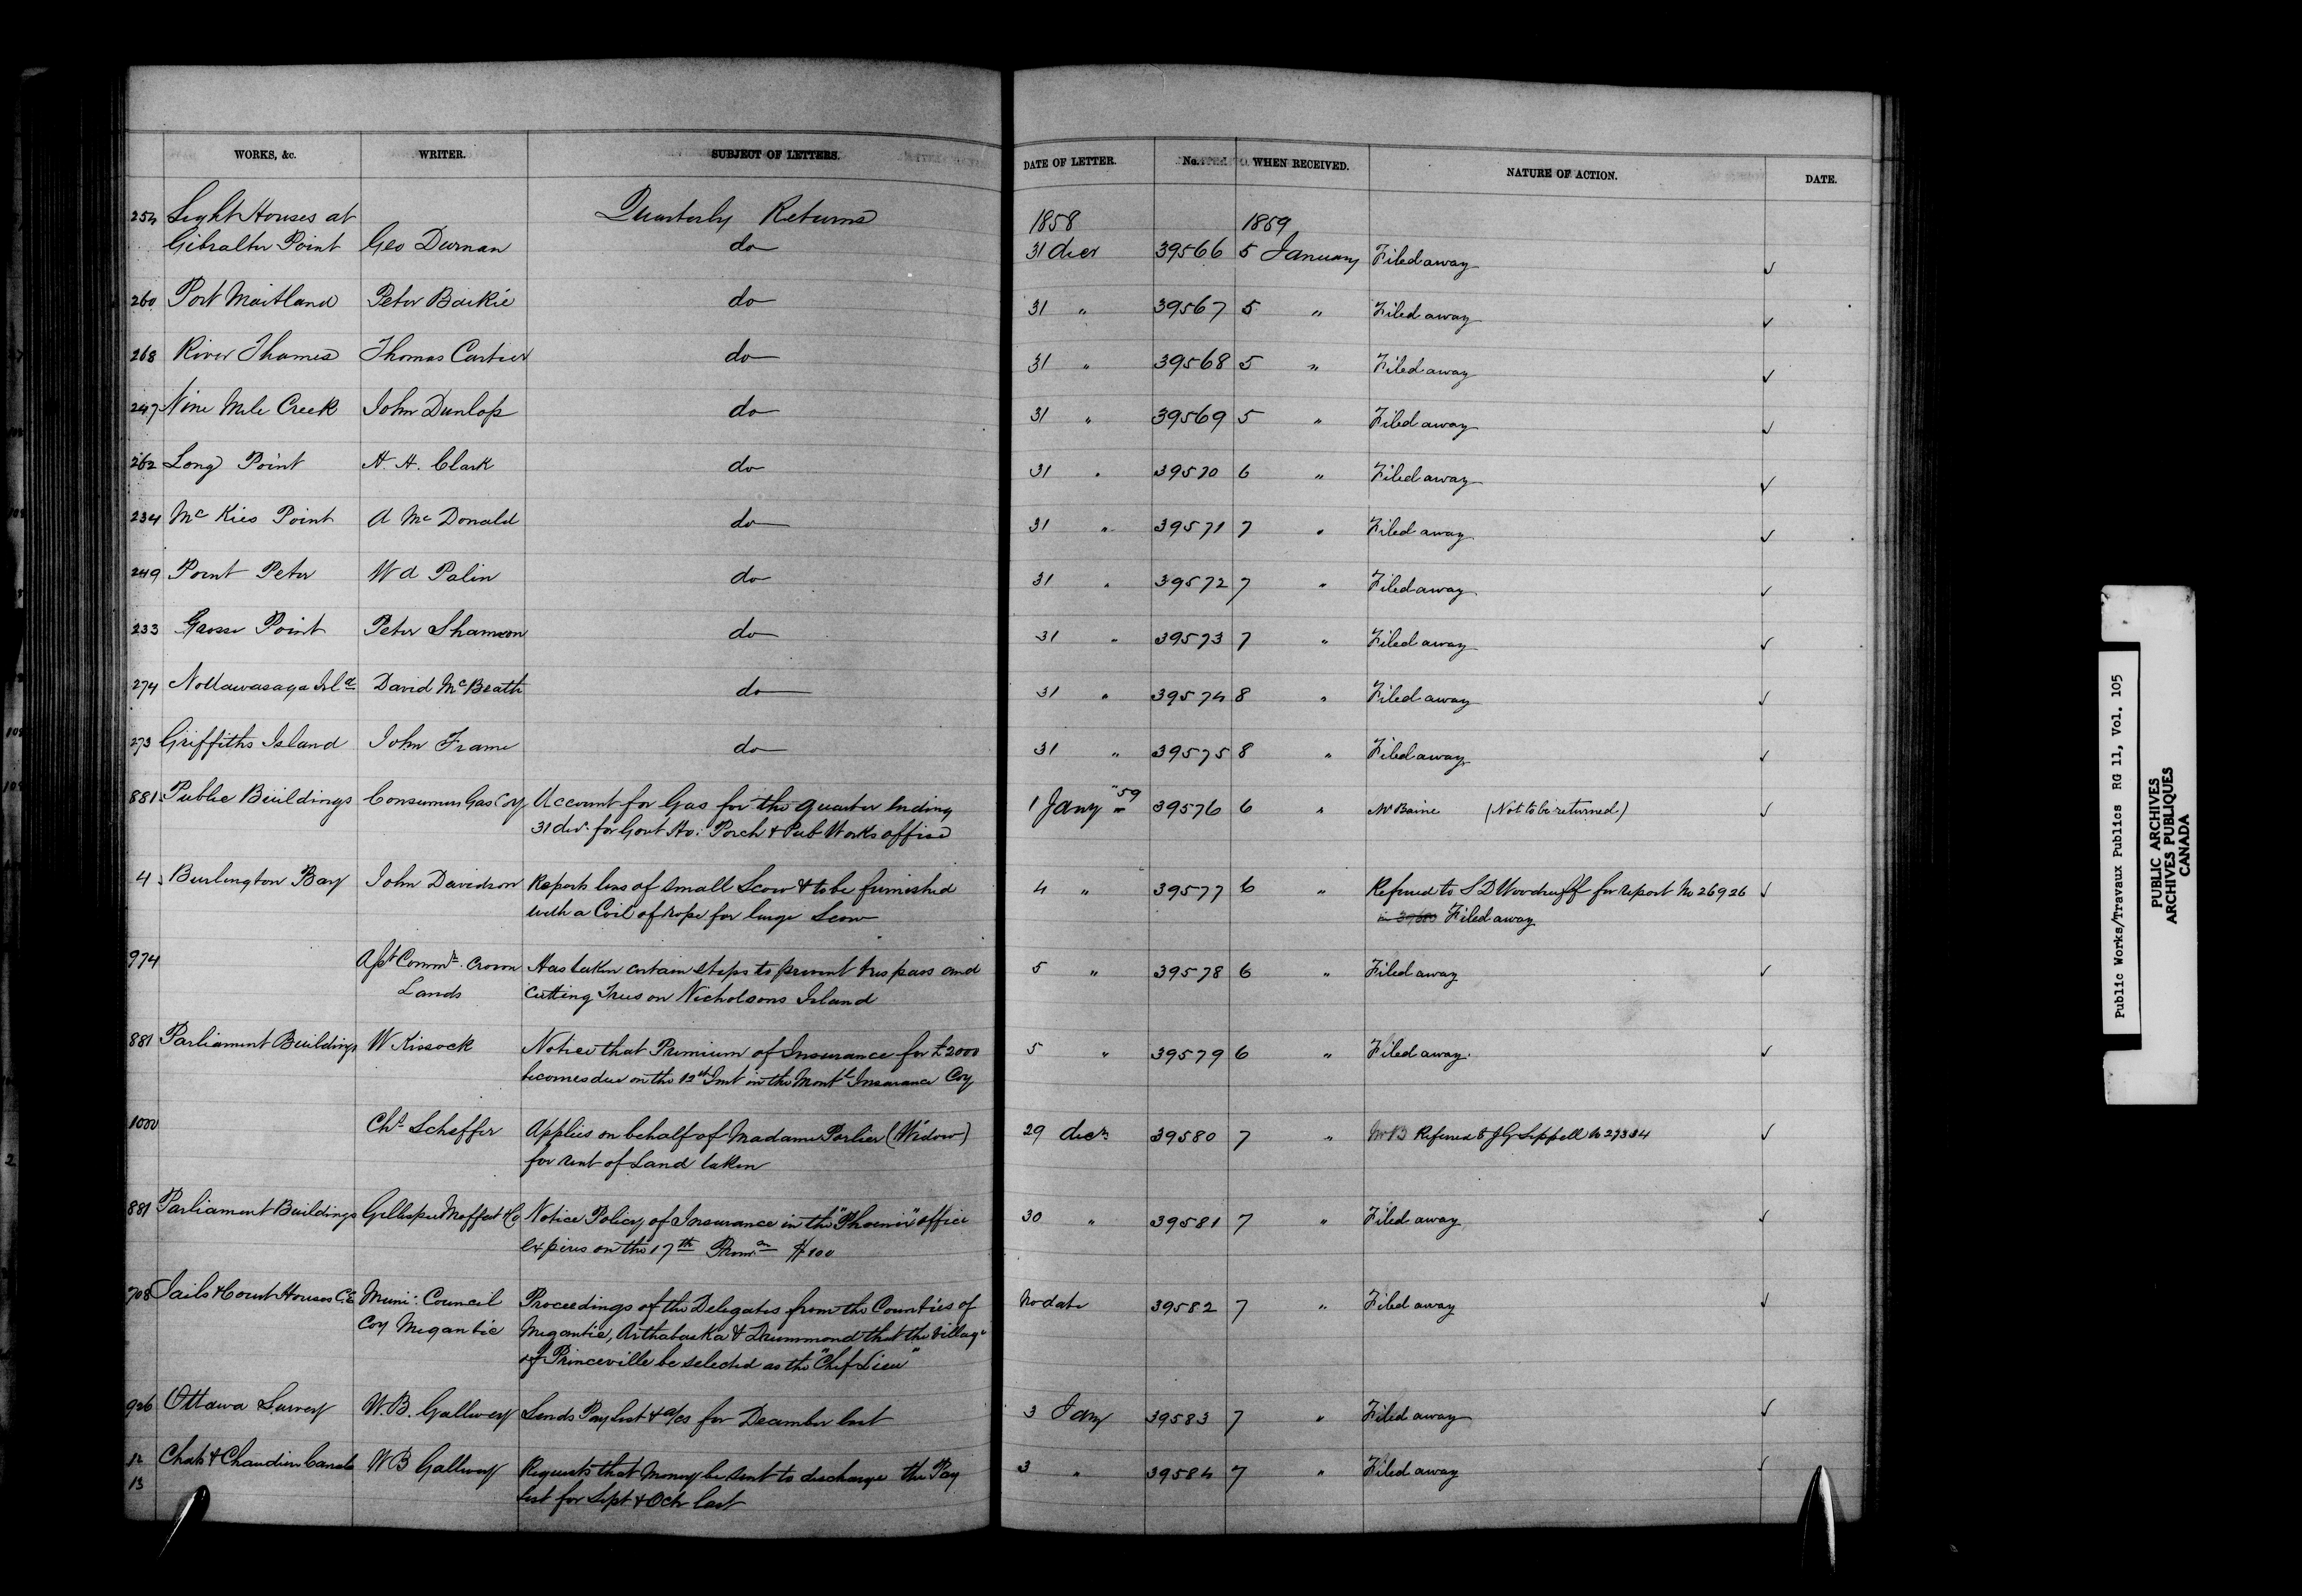 WORKS, &c. WRITER. SUBJECT OF LETTERS. DATE OF LETTER. No. WHEN RECEIVED. NATURE OF ACTION. DATE.
254 Light Houses at Quarterly Returns 1858 1859
Gibralter Point Geo Durnan do 31 decr 39566 5 January Filed away ✓
260 Port Maitland Peter Barkie do 31 " 39567 5 " Filed away ✓
268 River Thames Thomas Cartier do 31 " 39568 5 " Filed away ✓
247 Nine Mile Creek John Dunlop do 31 " 39569 5 " Filed away ✓
262 Long Point H. H. Clark do 31 " 39570 6 " Filed away ✓
234 Mc Kies Point A Mc Donald do 31 " 39571 7 " Filed away ✓
249 Point Peter W A Palin do 31 " 39572 7 " Filed away ✓
233 Grosse Point Peter Shannon do 31 " 39573 7 " Filed away ✓
274 Nottawasaga Isld David McBeath do 31 " 39574 8 " Filed away ✓
273 Griffiths Island John Frame do 31 " 39575 8 " Filed away ✓
881 Public Buildings Consumers Gas Coy Account for Gas for the quarter ending 1 Jany "59 39576 6 " Mr Baine (Not to be returned) ✓
31 decr for Govt Ho: Porch & Pub Works office
4 Burlington Bay John Davidson Reports loss of small Scow & to be furnished 4 " 39577 6 " Referred to S D Woodruff for report No 26926 ✓
with a Coil of rope for large Scow Filed away
974 Asst Commr Crown Has taken certain steps to prevent trespass and 5 " 39578 6 " Filed away ✓
Lands cutting Trees on Nicholsons Island
881 Parliament Buildings W Kissock Notice that Premium of Insurance for £2000 5 " 39579 6 " Filed away. ✓
becomes due on the 12th Inst in the Montl Insurance Coy
1000 Chs Scheffer Applies on behalf of Madame Parlier (Widow) 29 decr 39580 7 " Referred to J G Sippell No 27334 ✓
for rent of Land taken
881 Parliament Buildings Gillespie Moffat & Co Notice Policy of Insurance in the "Phoenix" office 30 " 39581 7 " Filed away ✓
expires on the 17th 100
708 Jails & Court Houses C.E Muni: Council Proceedings of the Delegates from the Counties of No date 39582 7 " Filed away ✓
Coy Megantic Megantic, Arthabaska & Drummond that the village
of Princeville be selected as the "Chef Lieu"
926 Ottawa Survey W.B. Gallwey Sends Pay list & a/cs for December last 3 Jany 39583 7 " Filed away ✓
12 Chats & Chaudiere Canals W B Gallwey Requests that Money be sent to discharge the Pay 3 " 39584 7 " Filed away ✓
13 list for Sept & Octr last
Public Works/Travaux Publics RG 11, Vol. 105
PUBLIC ARCHIVES
ARCHIVES PUBLIQUES
CANADA